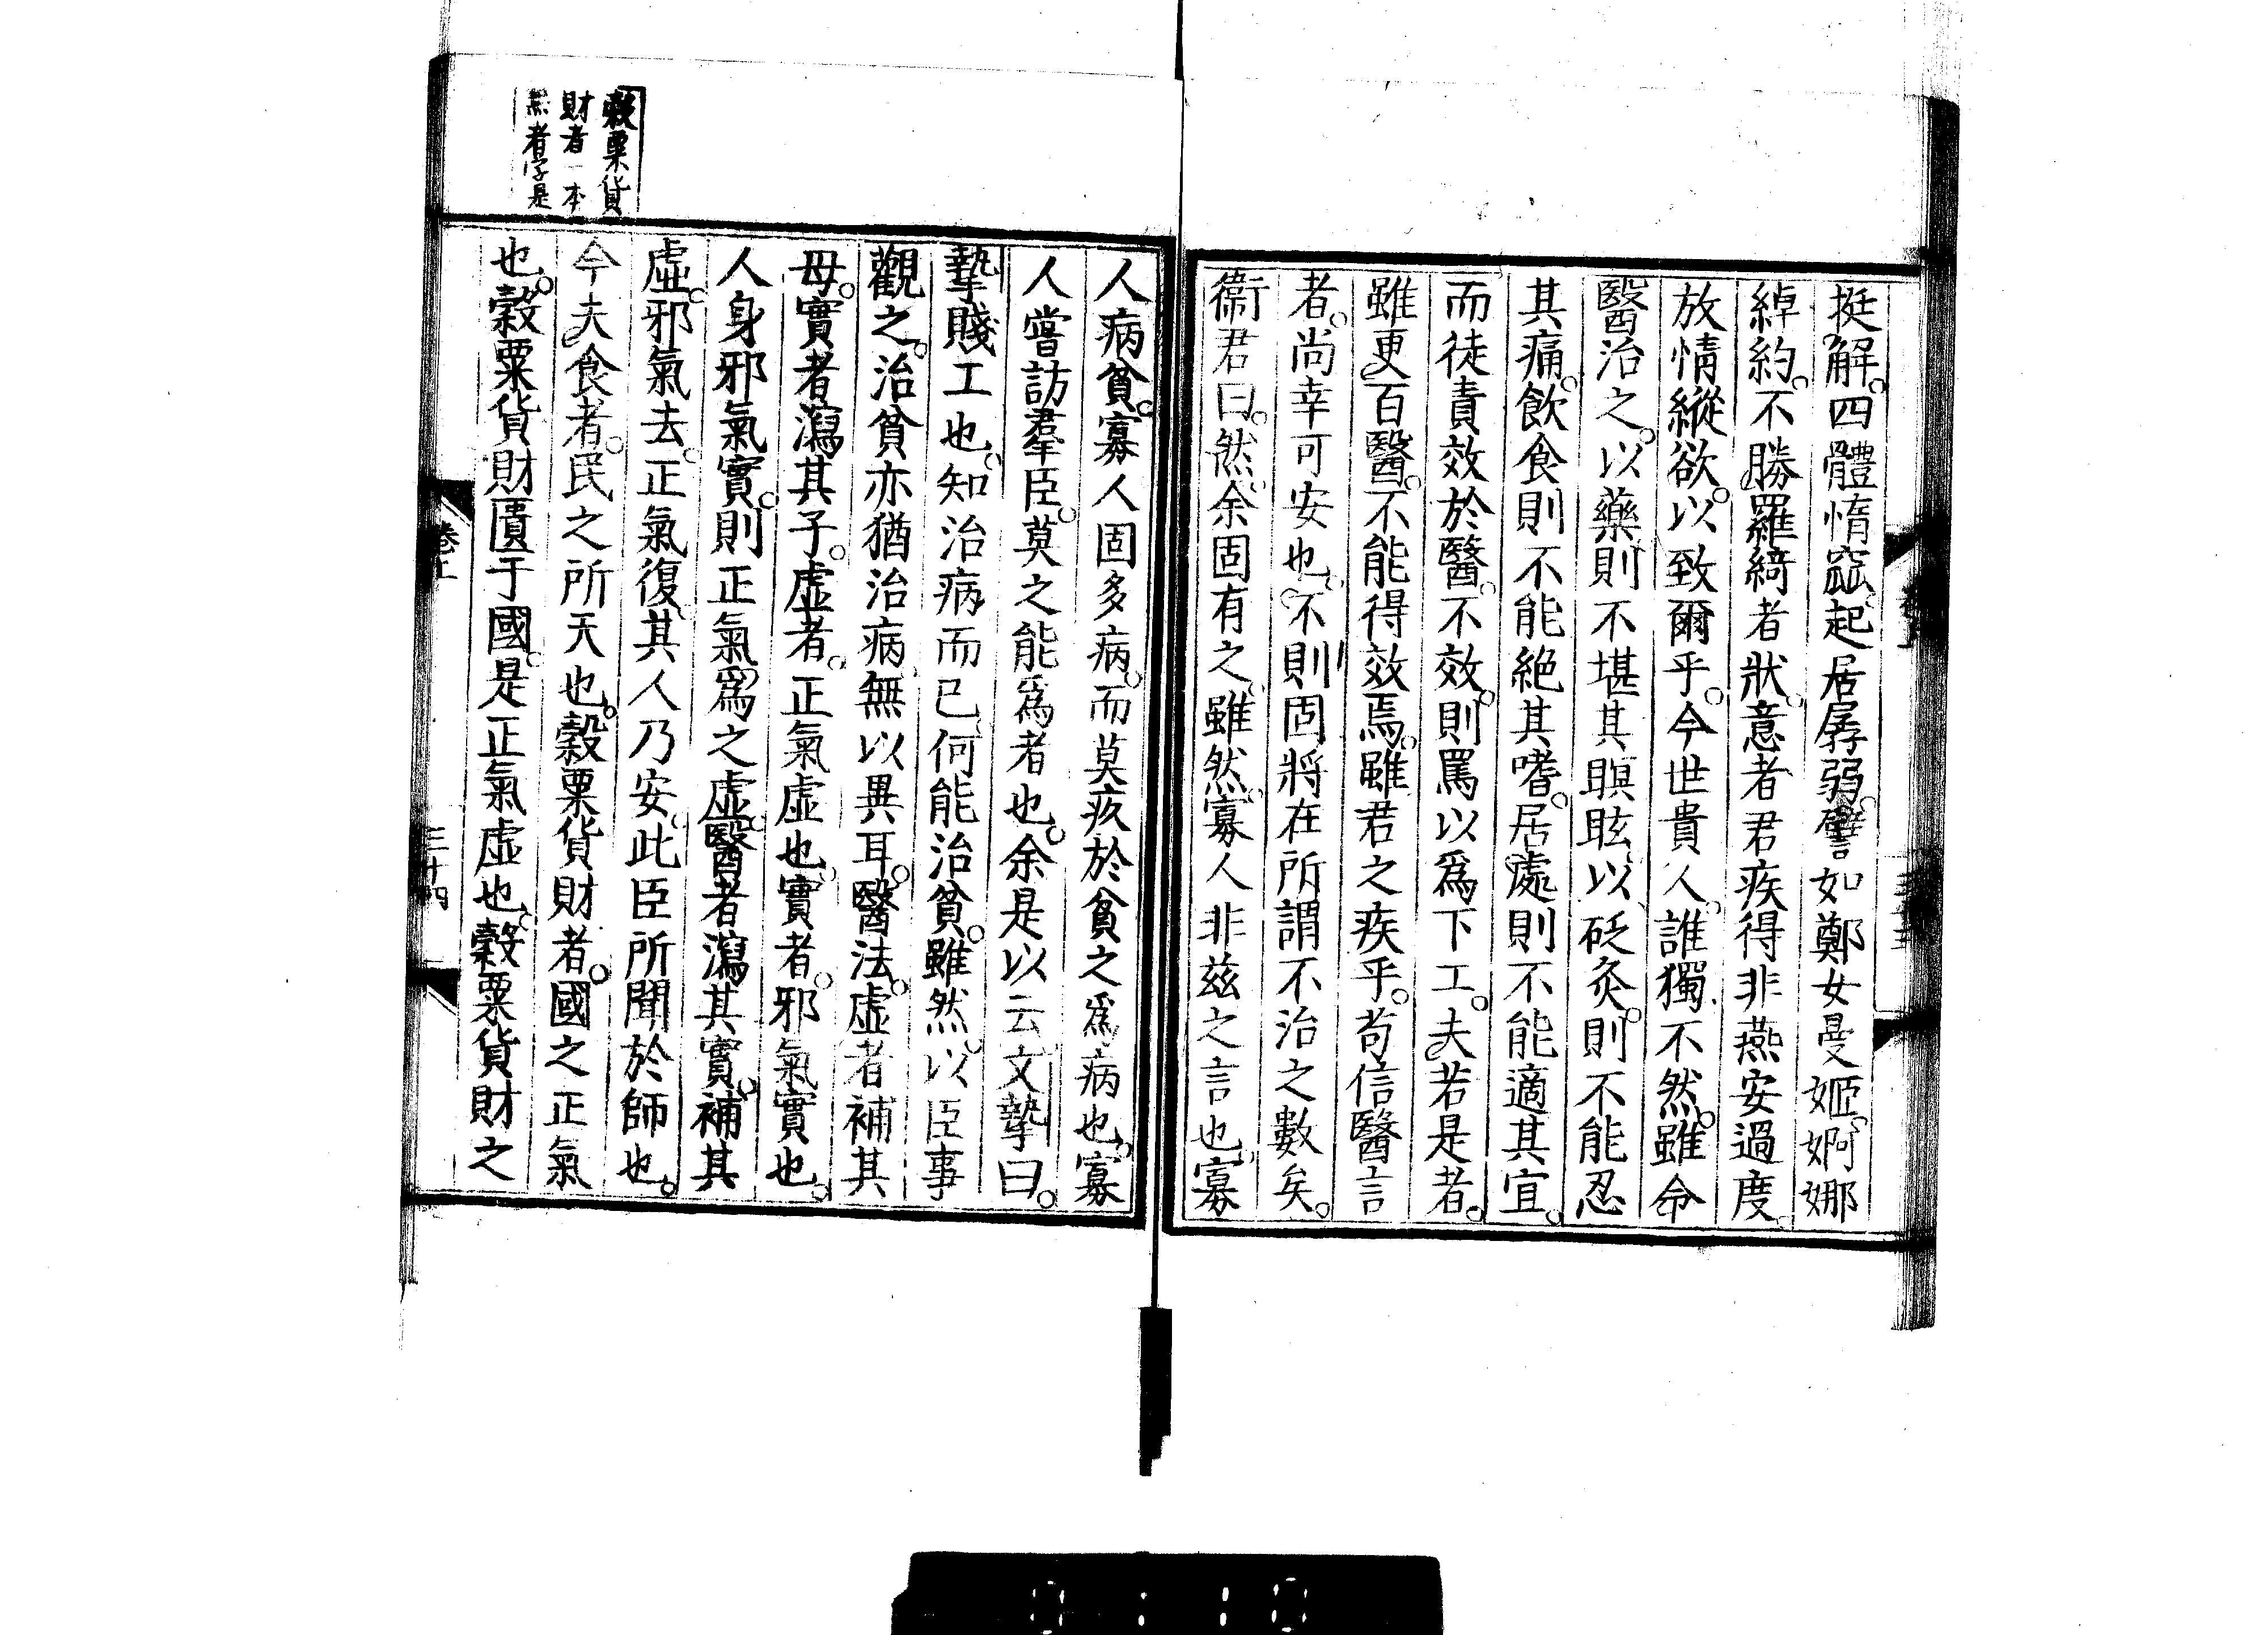 挺解。四體惰窳。起居孱弱。譬如鄭女曼姬。婀娜
綽約。不勝羅綺者狀。意者君疾得非燕安過度。
放情縱欲。以致爾乎。今世貴人。誰獨不然。雖命
醫治之。以藥則不堪其瞑眩。以砭灸。則不能忍
其痛。飲食則不能絶其嗜。居處則不能適其宜。
而徒責效於醫。不效。則罵以爲下工。夫若是者。
雖更百醫。不能得效焉。雖君之疾乎。苟信醫言
者。尚幸可安也。不則固將在所謂不治之數矣。
衞君曰。然。余固有之。雖然。寡人非茲之言也。寡
人病貧。寡人固多病。而莫疚於貧之爲病也。寡
人嘗訪羣臣。莫之能爲者也。余是以云。文摯曰。
摯賤工也。知治病而已。何能治貧。雖然。以臣事
觀之。治貧亦猶治病。無以異耳。醫法。虛者補其
母。實者瀉其子。虛者。正氣虛也。實者。邪氣實也。
人身邪氣實。則正氣爲之虛。醫者瀉其實。補其
虛。邪氣去。正氣復。其人乃安。此臣所聞於師也。
今夫食者。民之所天也。穀粟貨財者。國之正氣
也。穀粟貨財匱于國。是正氣虛也。穀粟貨財之
穀粟貨
財者一本
無者字是
卷上
三十四